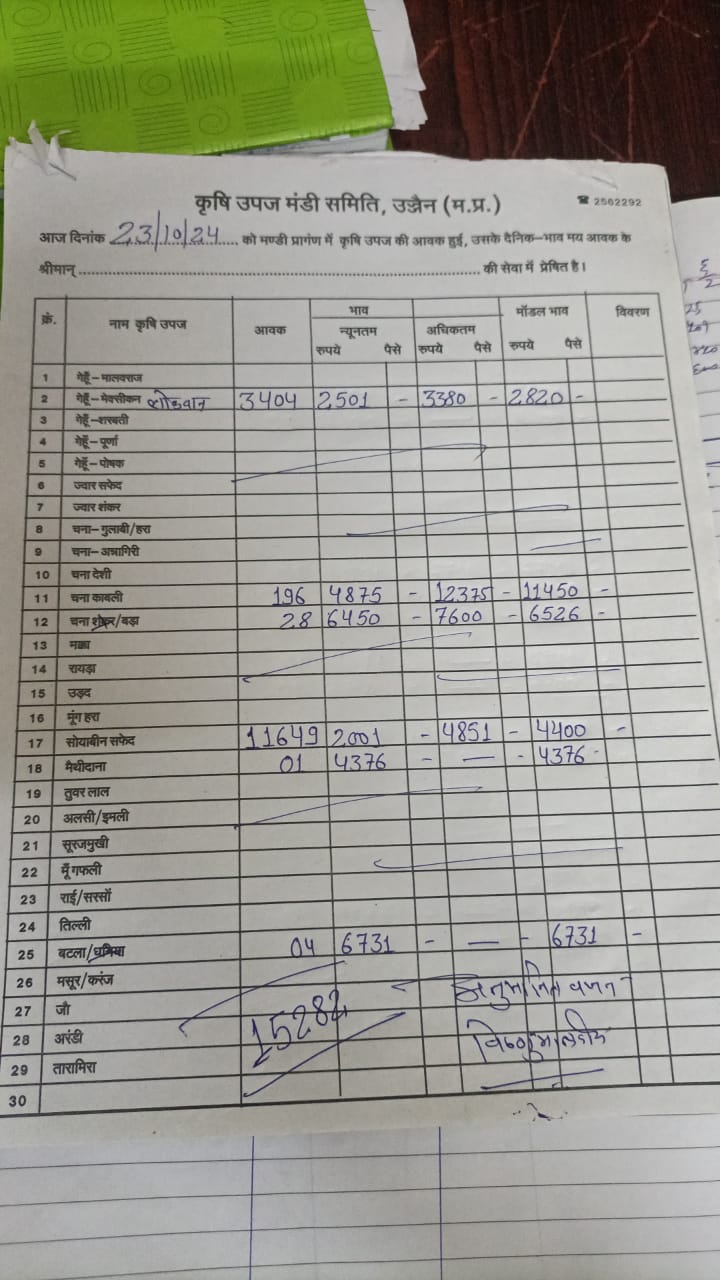 कृषि उपज मंडी समिति, उज्जैन (म.प्र.) ☎ 2562292
आज दिनांक 23/10/24 को मण्डी प्रागंण में कृषि उपज की आवक हुई, उसके दैनिक-भाव मय आवक के
श्रीमान् की सेवा में प्रेषित है।
क्रं. नाम कृषि उपज आवक भाव मॉडल भाव विवरण
न्यूनतम अधिकतम
रुपये पैसे रुपये पैसे रुपये पैसे
1 गेहूँ-मालवराज
2 गेहूँ-मेक्सीकन लोकवान 3404 2501 - 3380 - 2820 -
3 गेहूँ-शरबती
4 गेहूँ-पूर्णा
5 गेहूँ-पोषक
6 ज्वार सफेद
7 ज्वार शंकर
8 चना-गुलाबी/हरा
9 चना-अन्नागिरी
10 चना देशी
11 चना काबली 196 4875 - 12375 - 11450 -
12 चना शंकर/बड़ा 28 6450 - 7600 - 6526 -
13 मक्का
14 रायड़ा
15 उड़द
16 मूंग हरा
17 सोयाबीन सफेद 11649 2001 - 4851 - 4400 -
18 मैथीदाना 01 4376 - — - 4376 -
19 तुवर लाल
20 अलसी/इमली
21 सूरजमुखी
22 मूँगफली
23 राई/सरसों
24 तिल्ली
25 बटला/धनिया 04 6731 - — - 6731 -
26 मसूर/करंज
27 जौ अनुमानित वजन
28 अरंडी 15282
29 तारामिरा
30